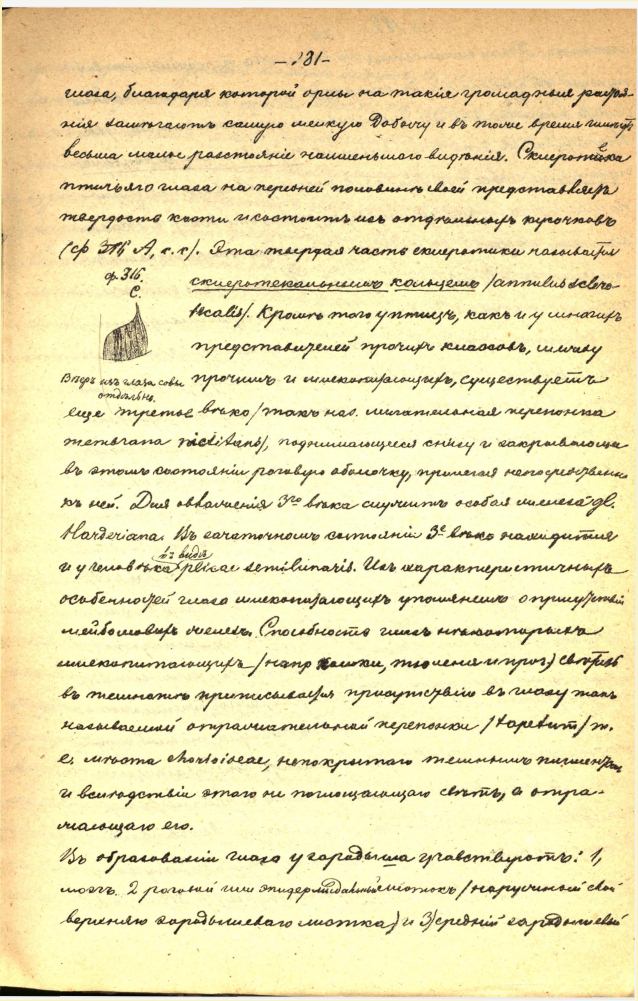 —131—
глаза, благодаря которой орлы на такія громадныя разстоя-
нія замѣчаютъ самую мелкую добычу и въ тоже время имѣютъ
весьма малое разстояніе наименьшаго видѣнія. Склеротика
птичьяго глаза на передней половинѣ своей представляетъ
твердость кости и состоитъ изъ отдѣльныхъ кусочковъ
(ф 316 А, с. с). Эта твердая часть склеротики называется
ф. 316.
С.
склеротекальнымъ кольцемъ /annulus sclero-
tecalis/. Кромѣ того у птицъ, какъ и у многихъ
представителей прочихъ классовъ, между
Впер. изъ глаза совы
отдѣльно.
прочимъ и млекопитающихъ, существуетъ
еще третье вѣко /такъ наз. мигательная перепонка
membrana nictitans/, поднимающееся снизу и закрывающее
въ этомъ состояніи роговую оболочку, прилегая непосредственно
къ ней. Для овлаженія 3го вѣка служитъ особая железа gl.
Harderiana. Въ зачаточномъ состояніи 3е вѣко находится
и у человѣка въ видѣ plicae semilunaris. Изъ характеристичныхъ
особенностей глаза млекопитающихъ упомянемъ о присутствіи
мейбомовыхъ железъ. Способность глазъ нѣкоторыхъ
млекопитающихъ /напр кошки, тюленя и проч) свѣтить
въ темнотѣ приписывается присутствію въ глазу такъ
называемой отражательной перепонки /tapetum/ т.
е. мѣста chorioideae, непокрытаго темнымъ пигментомъ
и вслѣдствіи этого не поглощающаго свѣтъ, а отра-
жающаго его.
Въ образованіи глаза у зародыша участвуютъ: 1,
мозгъ 2 роговой или эпидермоидальный листокъ /наружный слой
верхняго зародышеваго листка) и 3) средній зародышевый